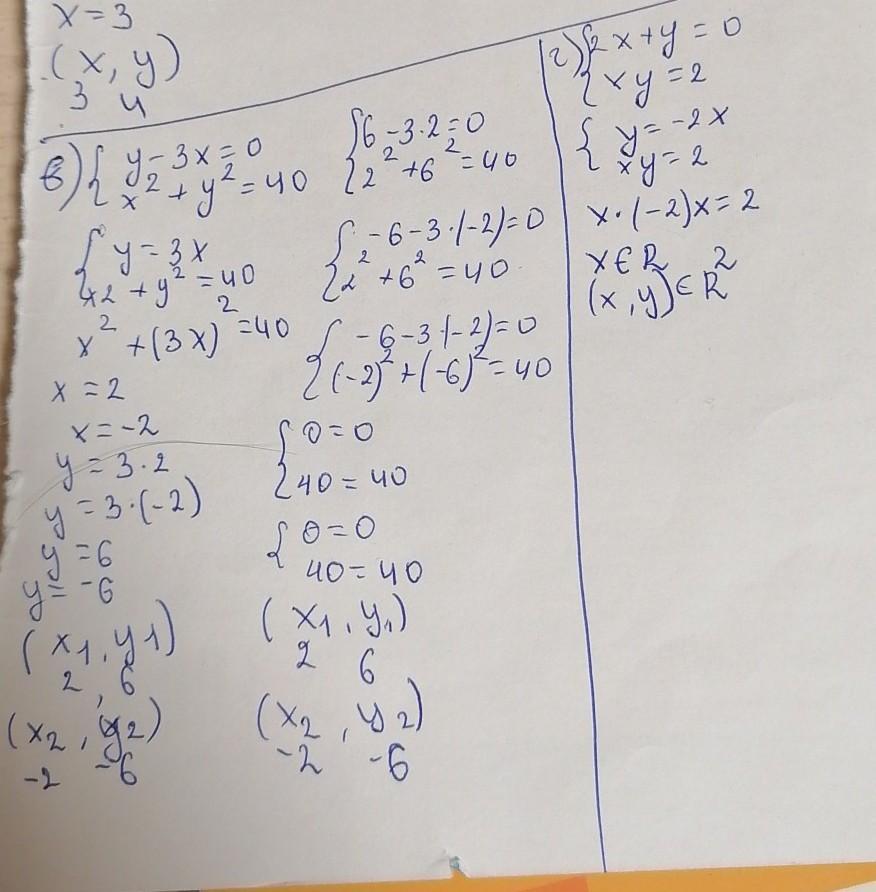 x=3
(x, y)
3 4
в) { y-3x=0
x²+y²=40
{ y=3x
x2+y²=40
x²+(3x)²=40
x=2
x=-2
y=3·2
y=3·(-2)
y=6
y=-6
(x₁, y1)
2, 6
(x₂, y2)
-2 -6
{ 6-3·2=0
2²+6²=40
{ -6-3·(-2)=0
2²+6²=40
{ -6-3·(-2)=0
(-2)²+(-6)²=40
{ 0=0
40=40
{ 0=0
40=40
(x₁, y₁)
2 6
(x₂, y₂)
-2 -6
г) { 2x+y=0
xy=2
{ y=-2x
xy=2
x·(-2)x=2
x∈R
(x,y)∈R²